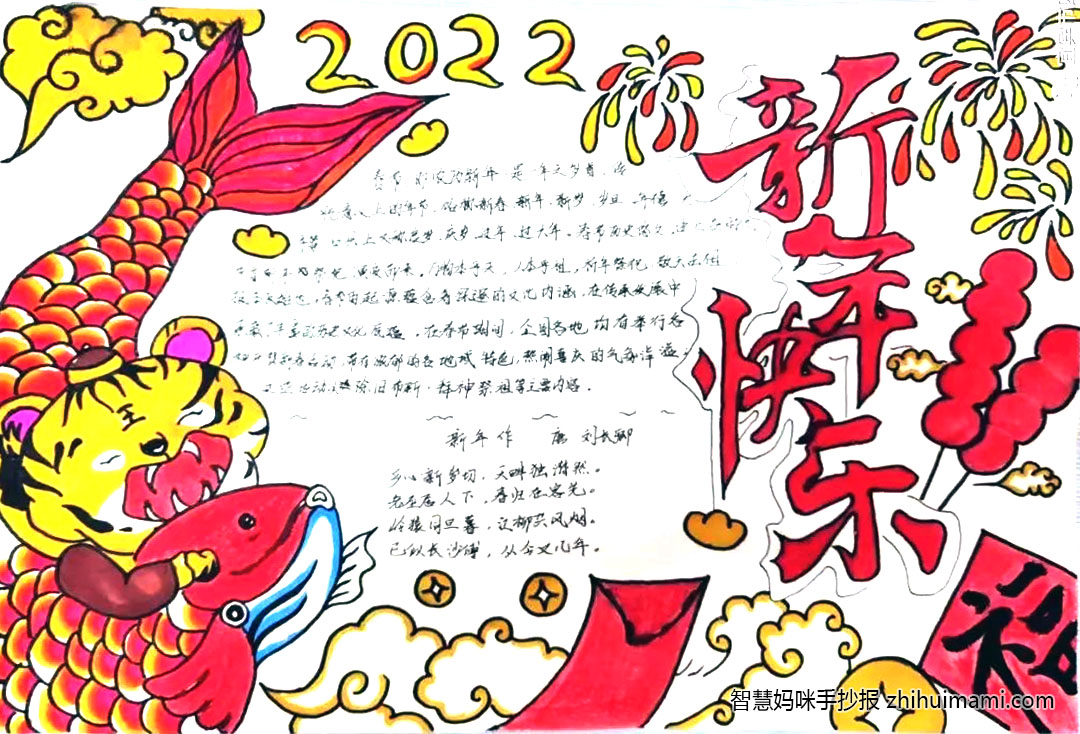 2022
新年快乐
春节 即农历新年 是一年之岁首、传
统意义上的年节。俗称新春、新年、新岁、岁旦、年
口头上又称度岁、庆岁、过年、过大年。春节历史悠久,由上古
祭祀演变而来,万物本乎天、人本乎祖,祈年祭祀、敬天法祖
春节的起源蕴含着深邃的文化内涵,在传承发展中
丰富的历史文化底蕴。在春节期间,全国各地均有举行各
贺新春活动,带有浓郁的各地域特色,热闹喜庆的气氛洋溢
活动以除旧布新、拜神祭祖等主要内容。
新年作 唐 刘长卿
乡心新岁切,天畔独潸然。
老至居人下,春归在客先。
岭猿同旦暮,江柳共风烟。
已似长沙傅,从今又几年。
福
智慧妈咪手抄报 zhihuimami.com